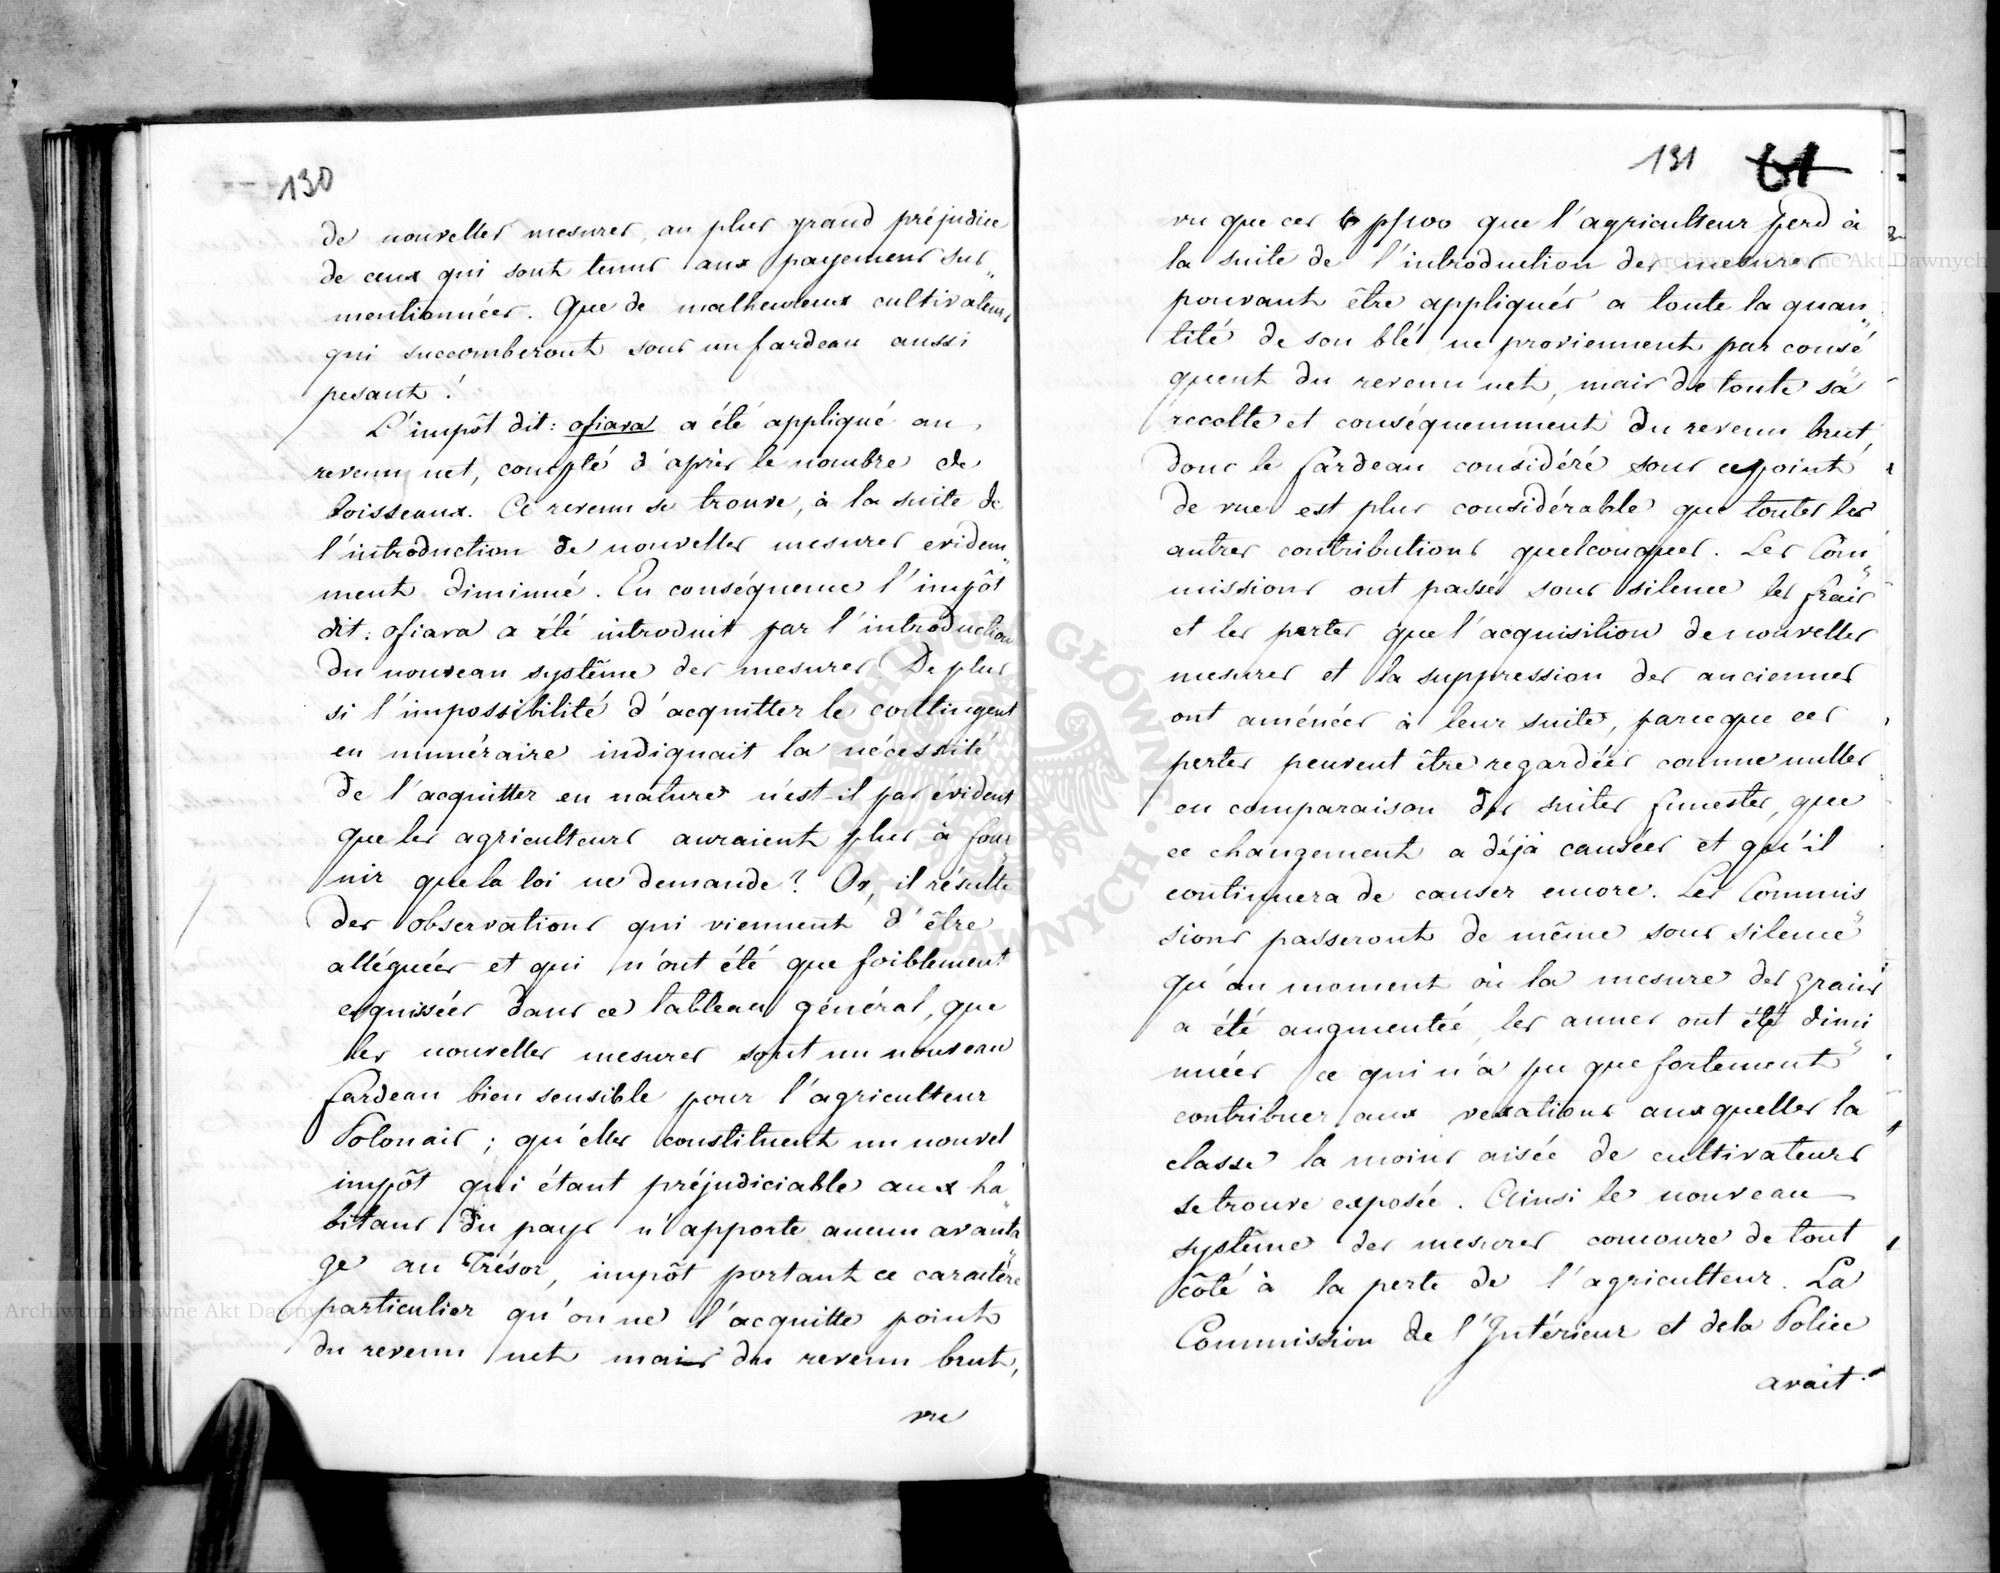 130
de nouvelles mesures, au plus grand préjudice
de ceux qui sont tenus aux payemens sus„
mentionnées. Que de malheureux cultivateurs
qui succomberont sous un fardeau aussi
pesant!
L'impôt dit: ofiara a été appliqué au
revenu net, compté d'après le nombre de
boisseaux. Ce revenu se trouve, à la suite de
l'introduction de nouvelles mesures evidem„
ment diminué. En conséquence l'impôt
dit: ofiara a été introduit par l'introduction
du nouveau système des mesures De plus
si l'impossibilité d'acquitter le contingent
en numéraire indiquait la nécessité
de l'acquitter en nature n'est-il pas évident
que les agriculteurs auraient plus à four„
nir que la loi ne demande? Or, il résulte
des observations qui viennent d'être
alléguées et qui n'ont été que foiblement
esquissées dans ce tableau général, que
les nouvelles mesures sont un nouveau
fardeau bien sensible pour l'agriculteur
Polonais; qu'elles constituent un nouvel
impôt qui étant préjudiciable aux ha„
bitans du pays n'apporte aucun avanta„
ge au Trésor, impôt portant ce caractère
particulier qu'on ne l'acquitte point
du revenu net mais du revenu brut,
vu
131 61
vu que ces 6 p/100 que l'agriculteur perd à
la suite de l'introduction des mesures
pouvant être appliqués a toute la quan„
tité de son blé ne proviennent par consé„
quent du revenu net, mais de toute sa
recolte et conséquemment du revenu brut,
donc le fardeau considéré sous ce point
de vue est plus considérable que toutes les
autres contributions quelconques. Les Com„
missions ont passés sous silence les frais
et les pertes que l'acquisition de nouvelles
mesures et la suppression des anciennes
ont aménées à leur suite, parceque ces
pertes peuvent être regardées comme nulles
en comparaison des suites funestes, que
ce changement a déjà causées et qu'il
continuera de causer encore. Les Commis„
sions passeront de même sous silence
qu'au moment où la mesure des grains
a été augmentée, les aunes ont été dimi„
nuées ce qui n'a pu que fortement
contribuer aux vexations auxquelles la
classe la moins aisée de cultivateurs
se trouve exposée. Ainsi le nouveau
système des mesures concoure de tout
côté à la perte de l'agriculteur. La
Commission de l'Intérieur et de la Police
avait
Archiwum Główne Akt Dawnych
Archiwum Główne Akt Dawnych
ARCHIWUM GŁÓWNE AKT DAWNYCH